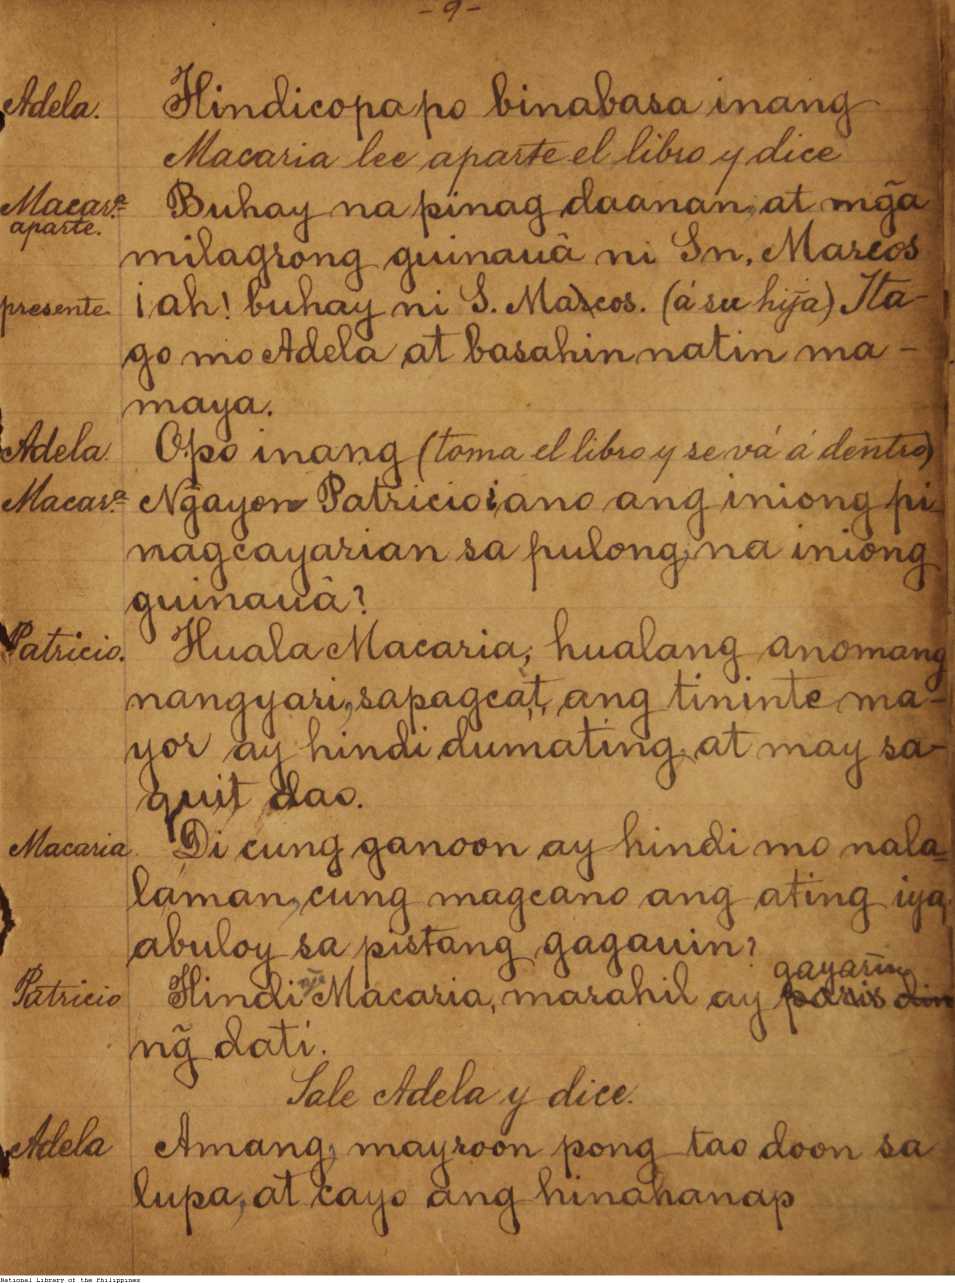 -9-
Adela. Hindicopa po binabasa inang
Macaria lee aparte el libro y dice
Macar.ª Buhay na pinag daanan, at mg̃a
aparte. milagrong guinauâ ni Sn, Marcos
presente. ¡ah! buhay ni S. Marcos. (á su hija) Ita-
go mo Adela at basahin natin ma-
maya.
Adela. Opo inang (toma el libro y se vá á dentro)
Macar.ª Ng̃ayon Patricio ¿ano ang iniong pi
nagcayarian sa pulong, na iniong
guinauâ?
Patricio. Huala Macaria, hualang anomang
nangyari, sapagcat, ang tininte ma-
yor ay hindi dumating, at may sa-
quit dao.
Macaria Di cung ganoon ay hindi mo nala-
laman, cung magcano ang ating iya
abuloy sa pistang gagauin?
gayarin
Patricio Hindi Macaria, marahil ay paris din
ng̃ dati.
Sale Adela y dice.
Adela Amang, mayroon pong tao doon sa
lupa, at cayo ang hinahanap
National Library of the Philippines